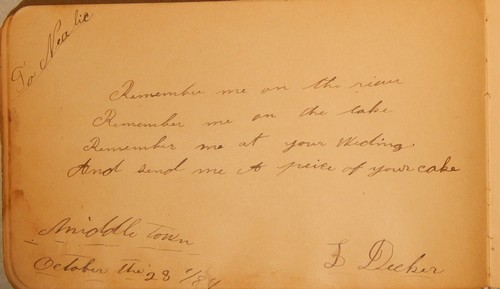 To Nealie
Remember me on the river
Remember me on the lake
Remember me at your Weding
And send me A peice of your cake
Middletown
October the 28 /84
Decker